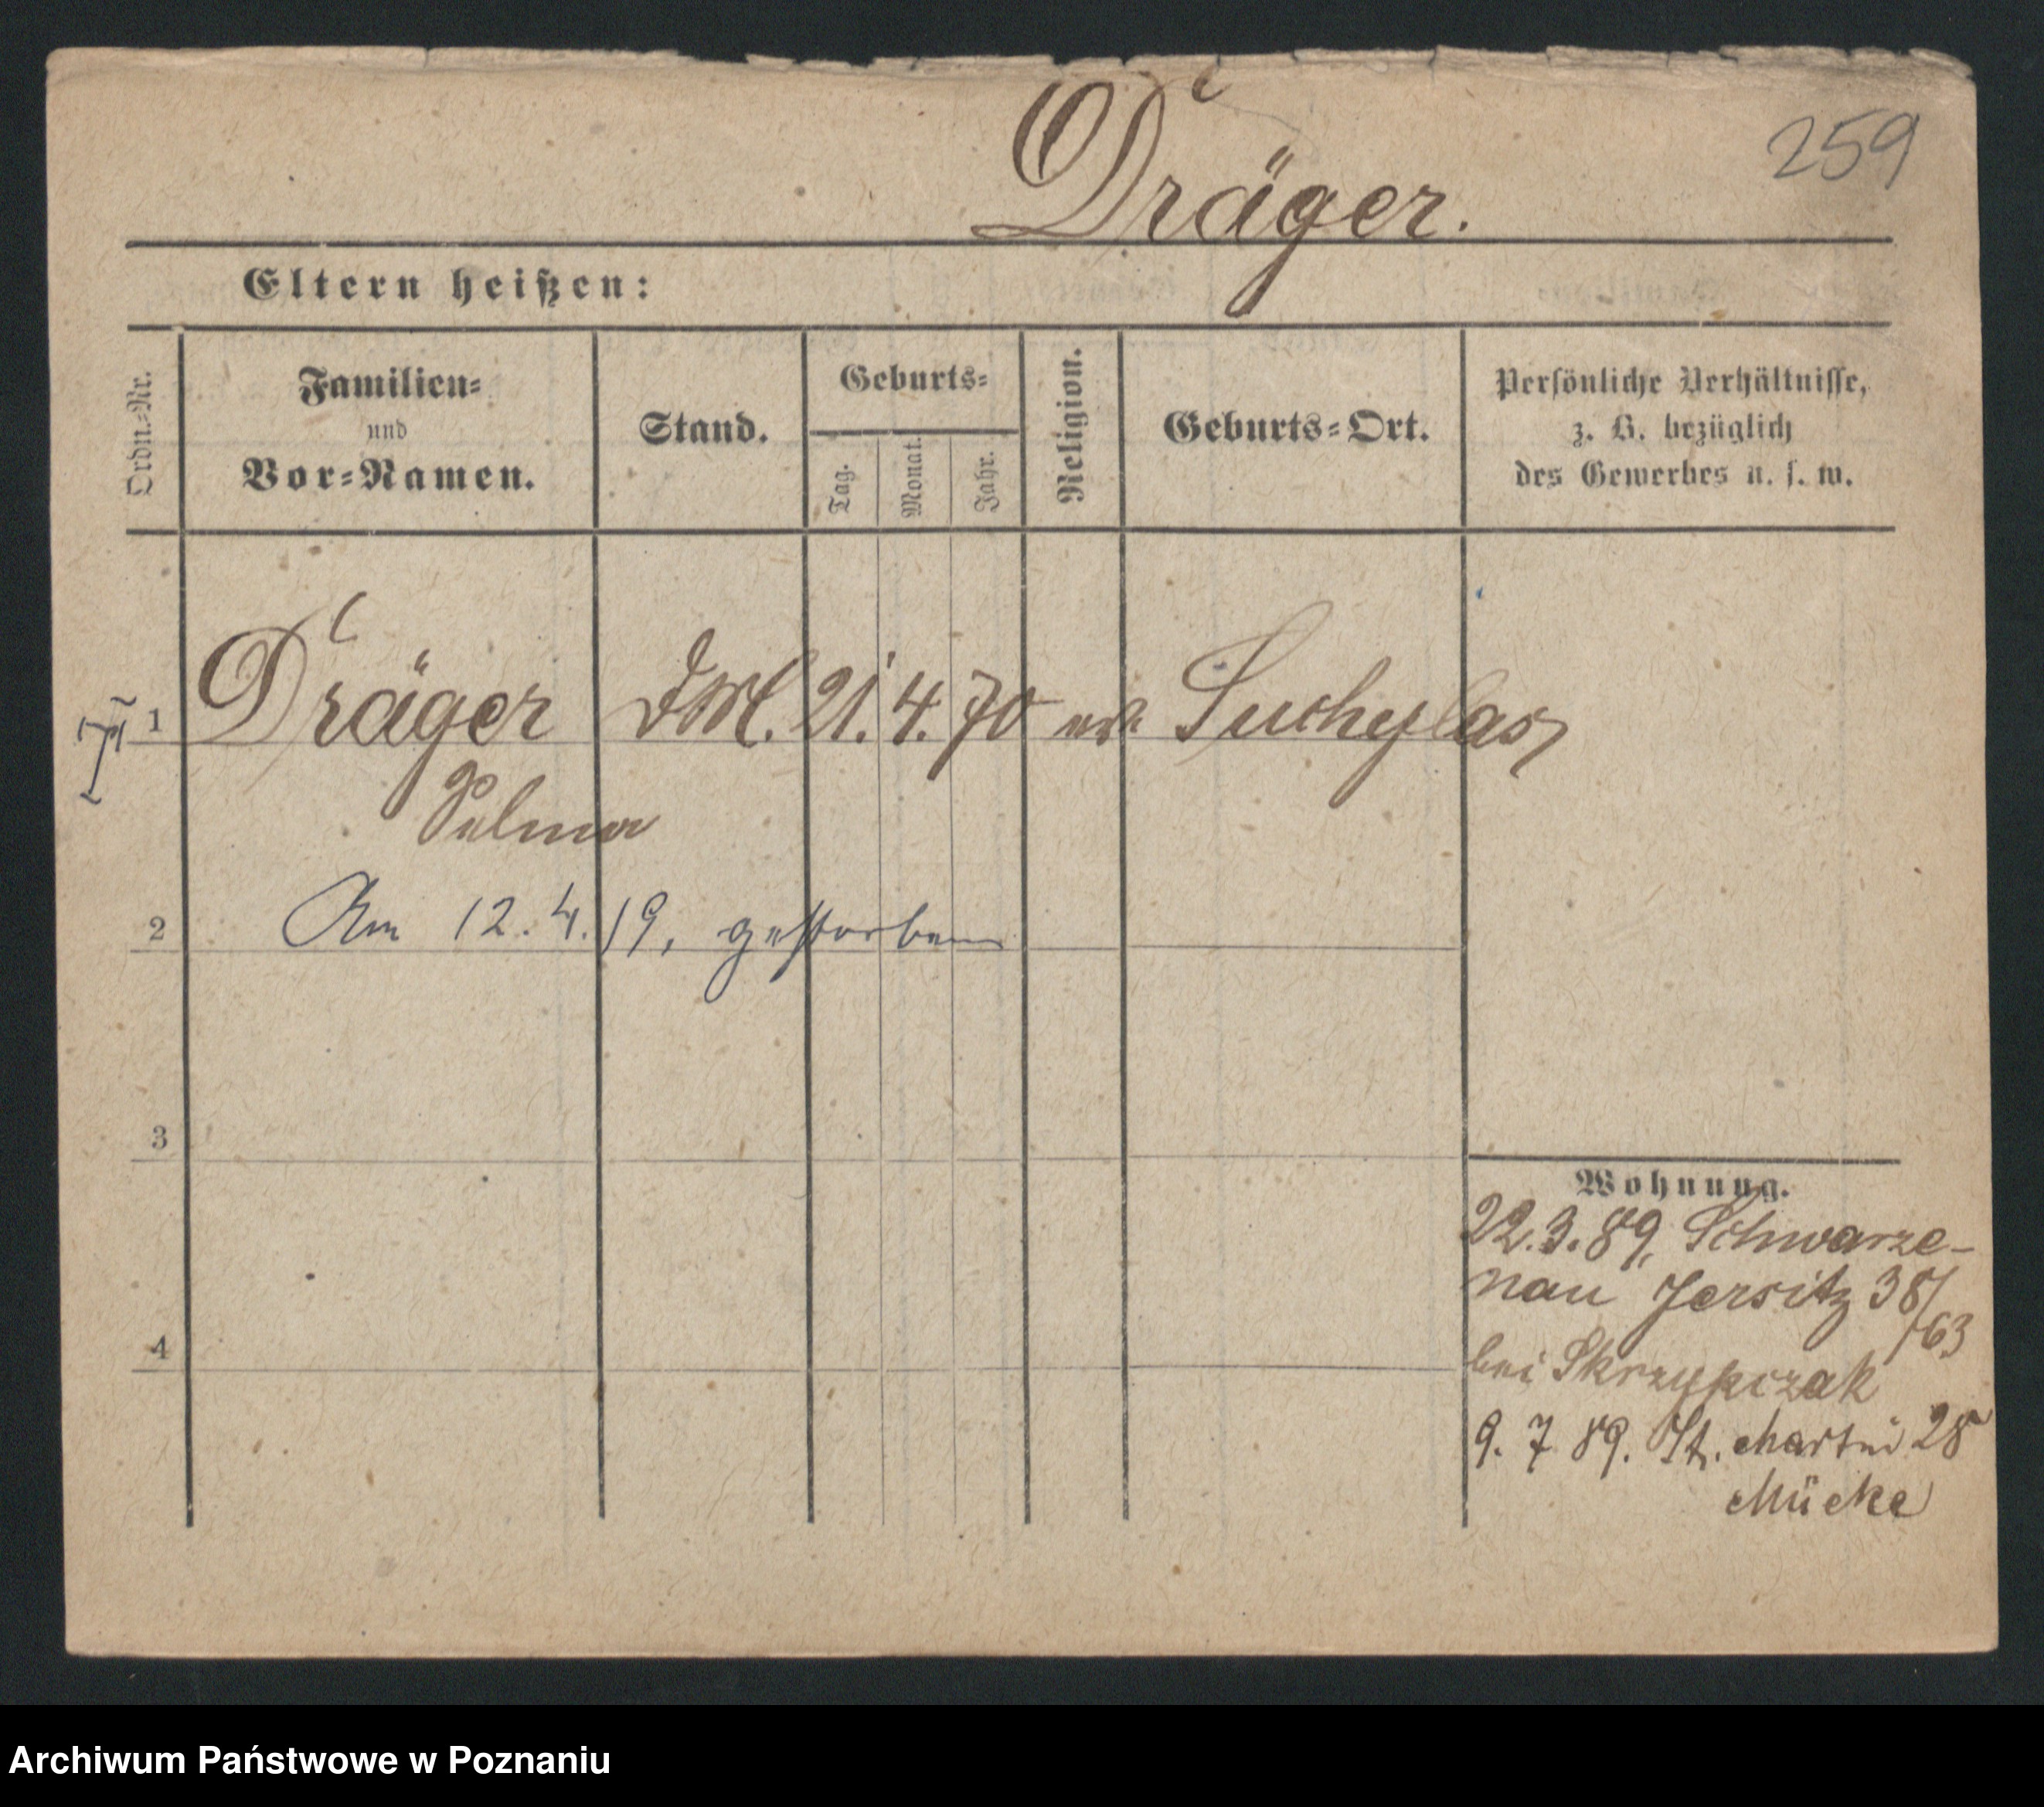 259
Dräger.
Eltern heißen:
Ordn.-Nr.
Familien-
und
Vor-Namen.
Stand.
Geburts-
Tag.
Monat.
Jahr.
Religion.
Geburts-Ort.
Persönliche Verhältnisse,
z. B. bezüglich
des Gewerbes u. s. w.
1 Dräger 21. 4. 70 Suchylas
Selma
2 Am 12. 4. 19, gestorben
3
4
Wohnung.
22.3.89, Schwarze-
nau Jersitz 38/
/63
bei Skrzypczak
9. 7 89. St. Martin 28
Mücke
Archiwum Państwowe w Poznaniu